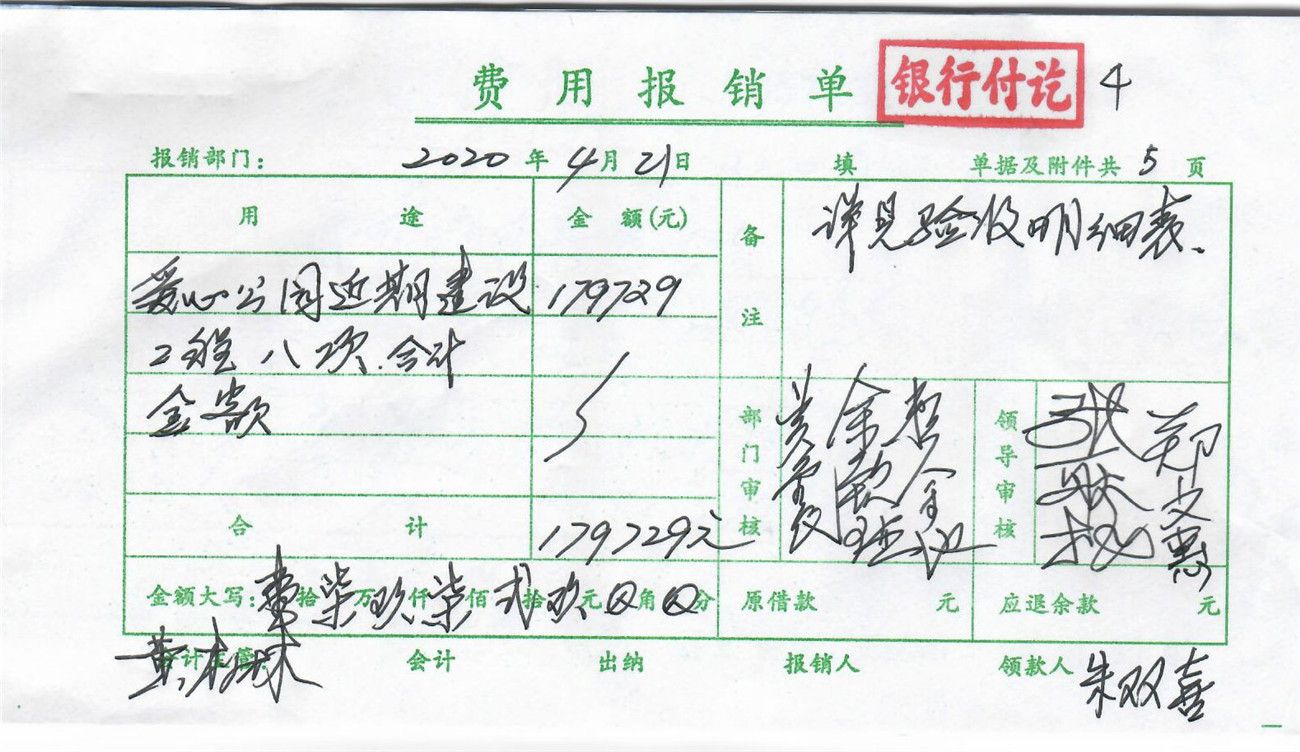 费用报销单 银行付讫 4
报销部门： 2020年4月21日 填 单据及附件共5页
用途 金额(元) 备注 详见验收明细表.
爱心公园近期建设 179729
工程八项.合计
金额
部门审核 领导审核 郑文惠
合计 179729元
金额大写：壹拾柒万玖仟柒佰贰拾玖元⊗角⊗分 原借款 元 应退余款 元
会计主管： 会计 出纳 报销人 领款人 朱双喜